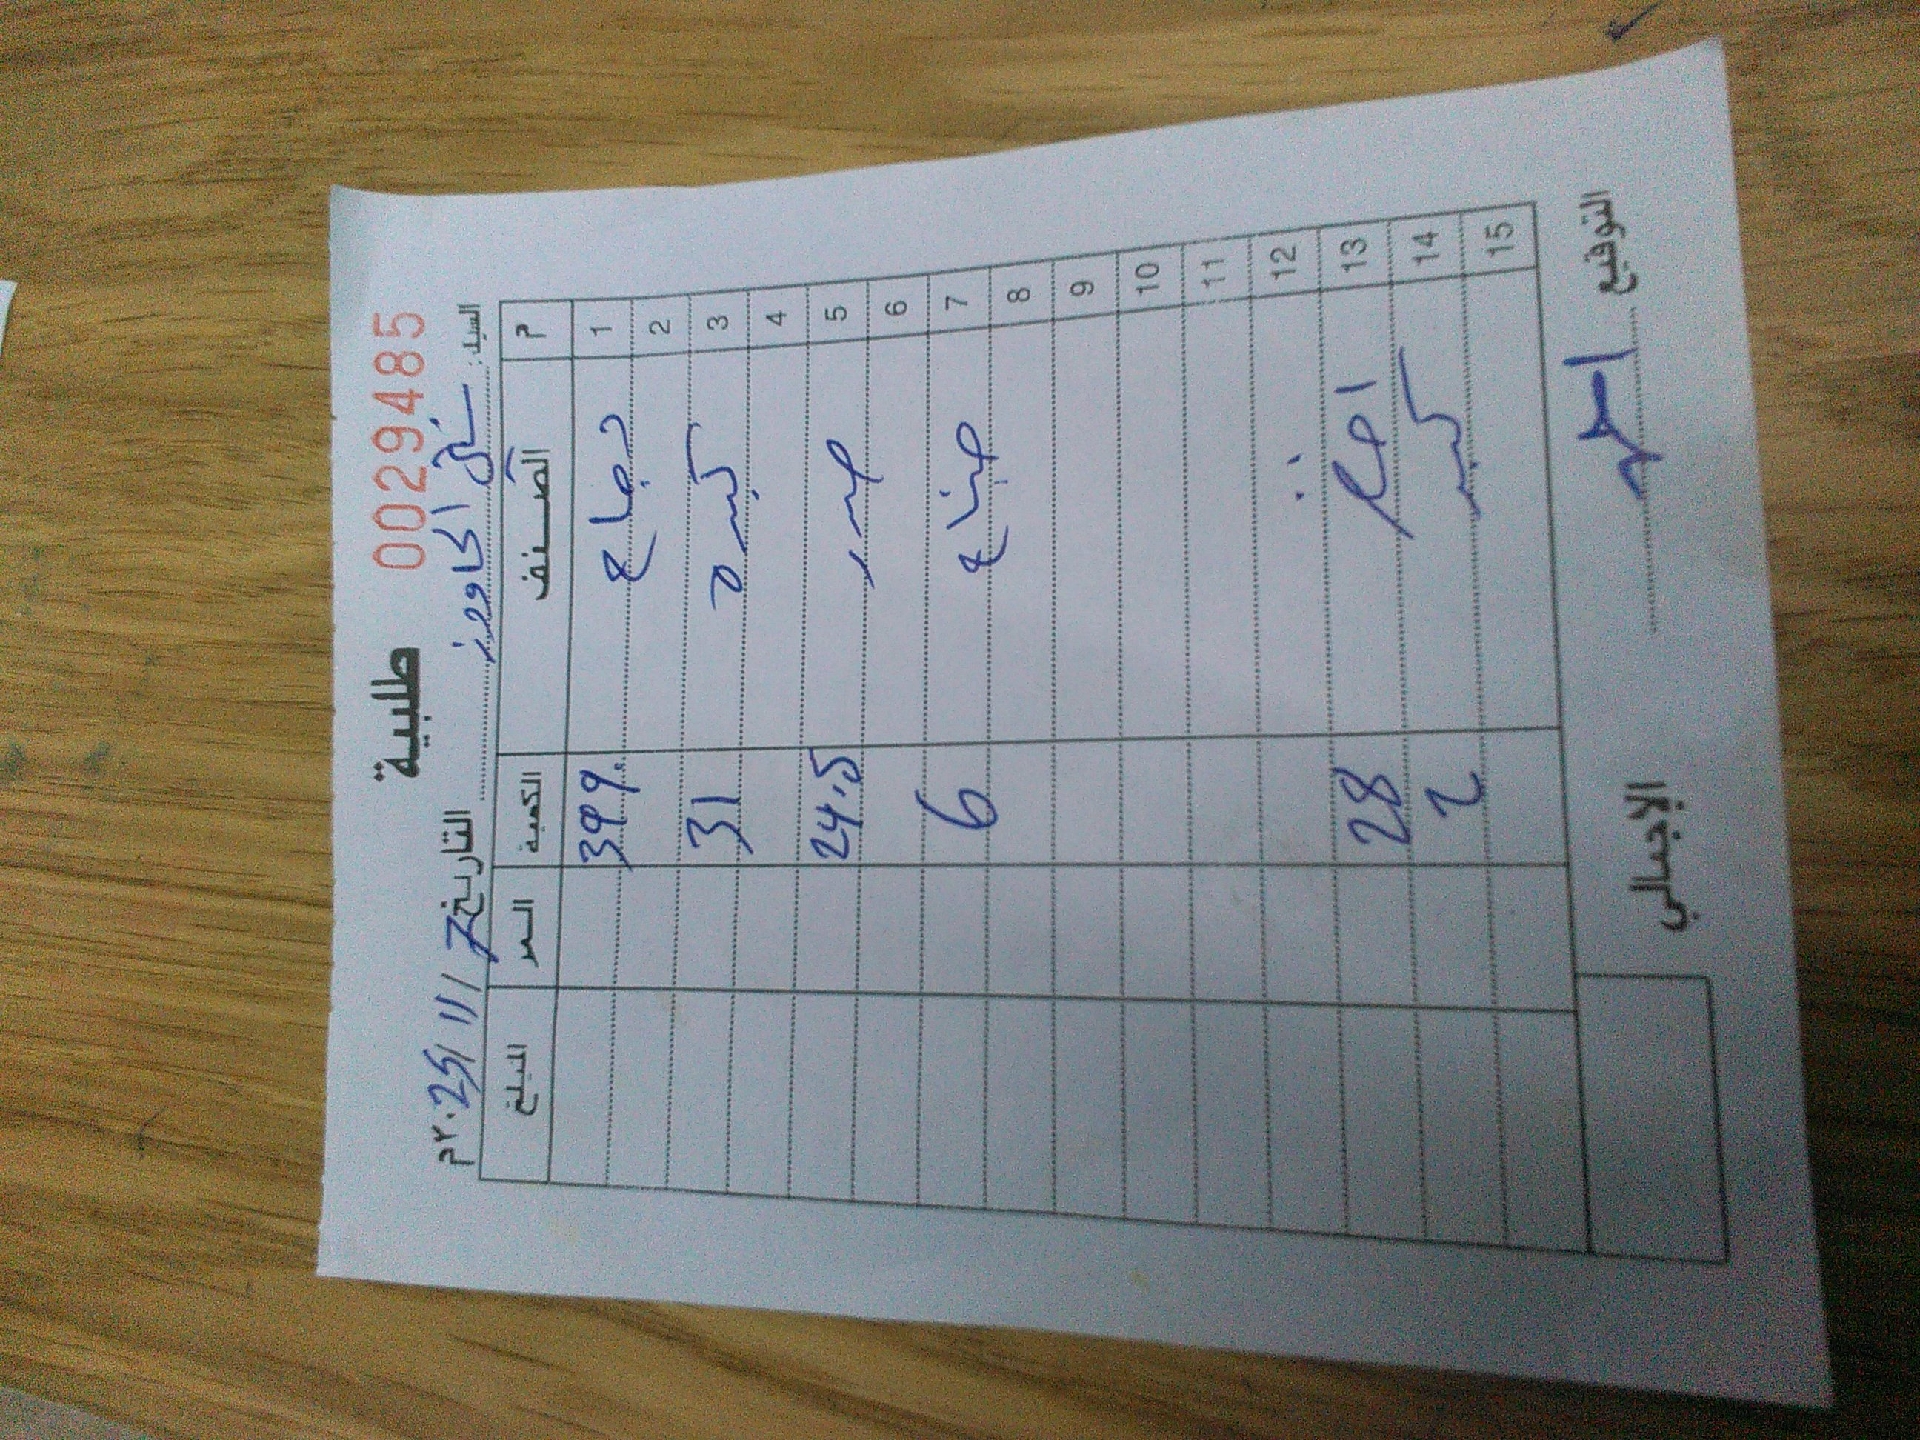 طلبية 0029485
السيد: التاريخ 7 / 11 / 2025م
م الصنف الكمية السعر المبلغ
1 دجاج 399.
2
3 كبده 31
4
5 صدر 24.5
6
7 جناح 6
8
9
10
11
12
13 28
14 كبير 2
15
التوقيع احمد الإجمالي